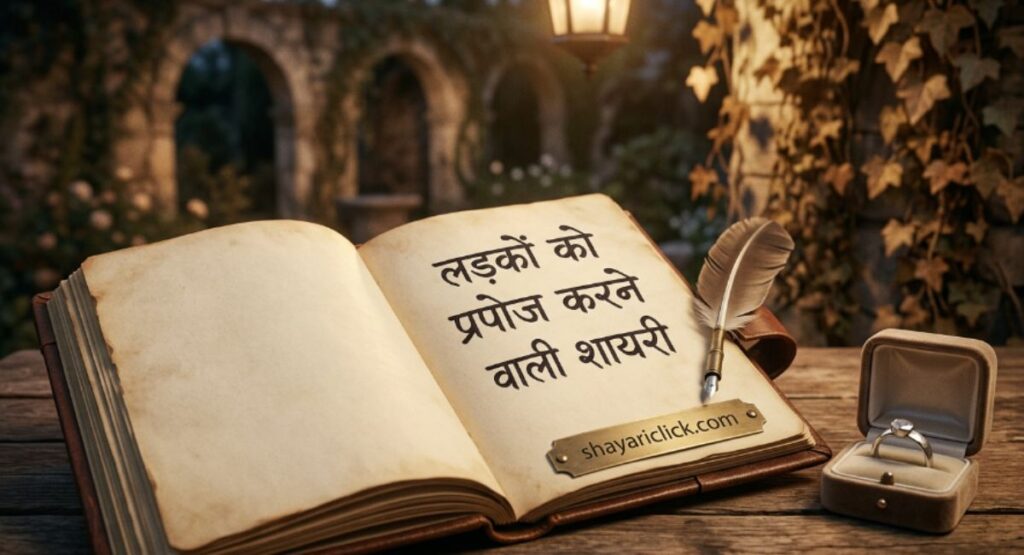 लड़कों को
प्रपोज करने
वाली शायरी
shayariclick.com